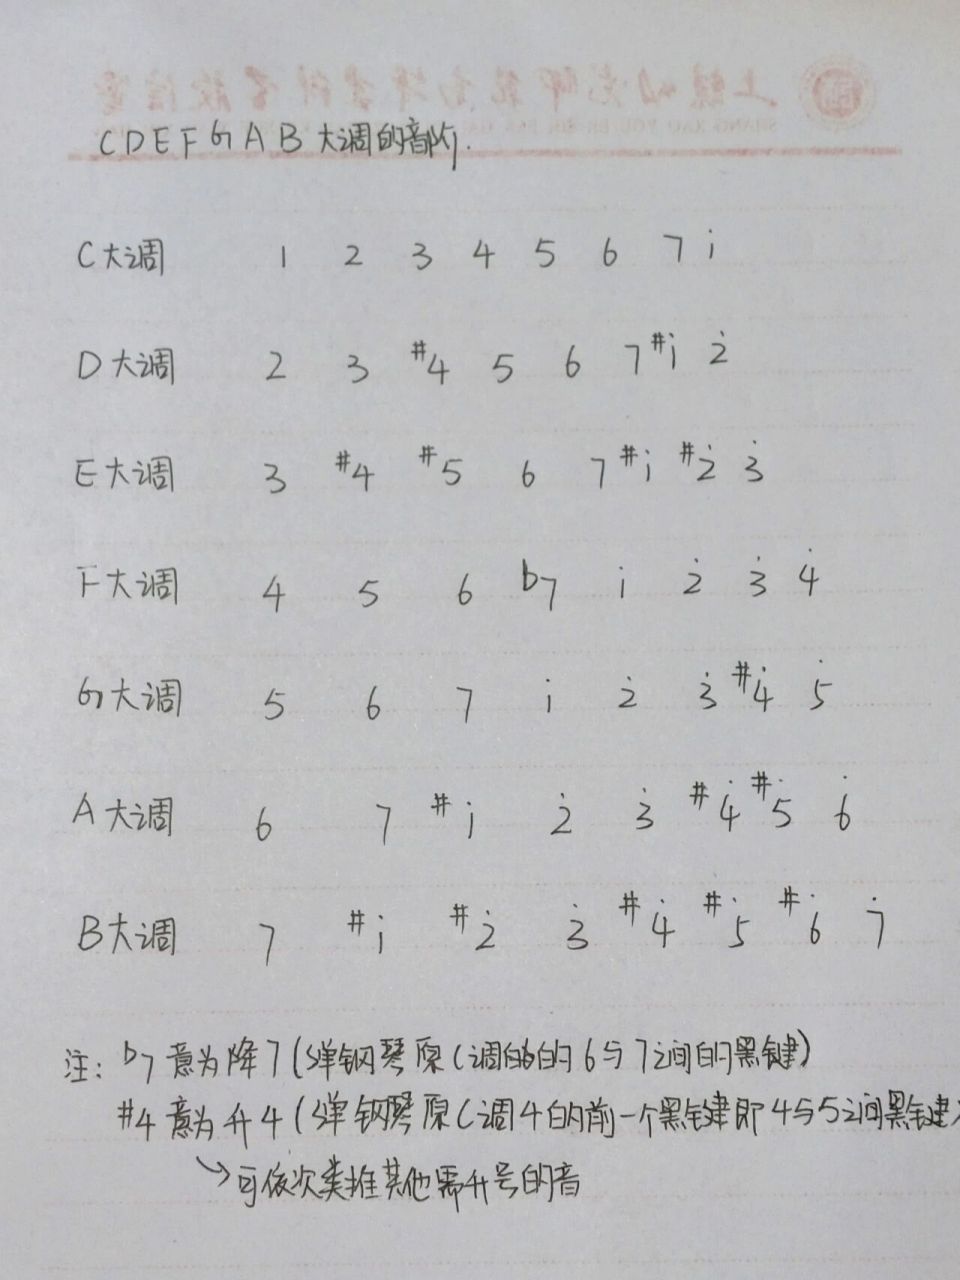 CDEFGAB大调的音阶.
C大调 1 2 3 4 5 6 7 i
D大调 2 3 #4 5 6 7 #i 2̇
E大调 3 #4 #5 6 7 #i #2̇ 3̇
F大调 4 5 6 b7 i 2̇ 3̇ 4̇
G大调 5 6 7 i 2̇ 3̇ #4̇ 5̇
A大调 6 7 #i 2̇ 3̇ #4̇ #5̇ 6̇
B大调 7 #i #2̇ 3̇ #4̇ #5̇ #6̇ 7̇
注: b7意为降7(弹钢琴原C调的的6与7之间的黑键)
#4意为升4(弹钢琴原C调4的前一个黑键即4与5之间黑键
↘可依次类推其他需升号的音